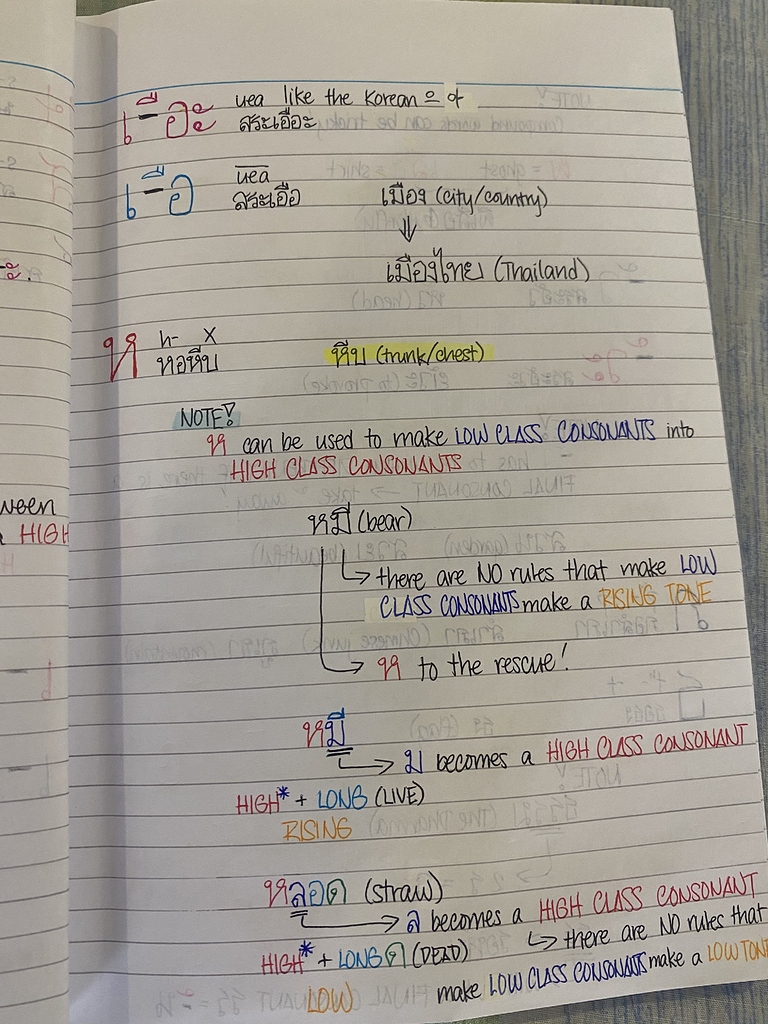 เ-ือะ uea like the Korean 으 아
สระเอือะ
เ-ือ uea
สระเอือ เมือง (city/country)
เมืองไทย (Thailand)
ห h- X
หอหีบ หีบ (trunk/chest)
NOTE!
ห can be used to make LOW CLASS CONSONANTS into
HIGH CLASS CONSONANTS
หมี (bear)
there are NO rules that make LOW
CLASS CONSONANTS make a RISING TONE
ห to the rescue!
หมี
ม becomes a HIGH CLASS CONSONANT
HIGH* + LONG (LIVE)
RISING
หลอด (straw)
ล becomes a HIGH CLASS CONSONANT
HIGH* + LONG ด (DEAD) there are NO rules that
LOW make LOW CLASS CONSONANTS make a LOW TONE
ween
HIGH